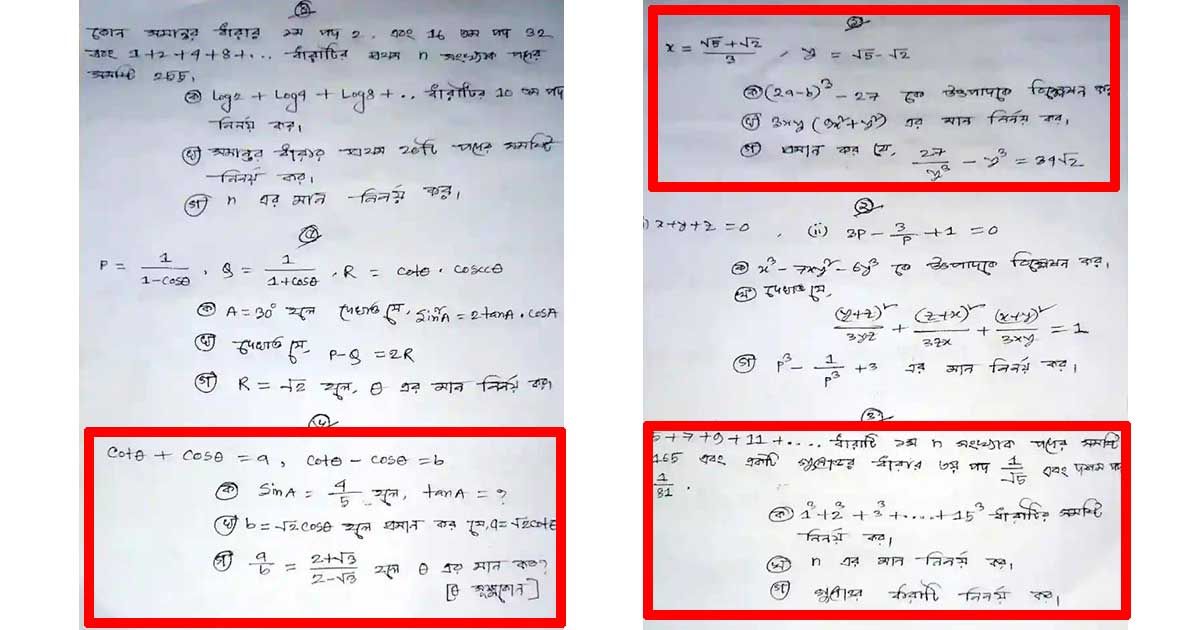 ৩
কোন সমান্তর ধারার ১ম পদ 2, এবং 16 তম পদ 32
এবং 1+2+4+8+... ধারাটির প্রথম n সংখ্যক পদের
সমষ্টি 255.
ক) Log2 + Log4 + Log8 + .. ধারাটির 10 তম পদ
নির্নয় কর।
খ) সমান্তর ধারার প্রথম 20টি পদের সমষ্টি
নির্নয় কর।
গ) n এর মান নির্নয় কর।
P = 1/(1-cosθ), Q = 1/(1+cosθ), R = cotθ · cosecθ
ক) A = 30° হলে দেখাও যে, Sin²A = 2tanA · cosA
খ) দেখাও যে, P-Q = 2R
গ) R = √2 হলে, θ এর মান নির্নয় কর।
cotθ + cosθ = a, cotθ - cosθ = b
ক) SinA = 4/5 হলে, tanA = ?
খ) b = √2cosθ হলে প্রমান কর যে, a = √2cotθ
গ) a/b = (2+√3)/(2-√3) হলে θ এর মান কত?
[θ সূক্ষ্মকোন]
x = (√5+√2)/3, y = √5-√2
ক) (2a-b)³ - 27 কে উৎপাদকে বিশ্লেষন কর
খ) 3xy (9x²+y²) এর মান নির্নয় কর।
গ) প্রমান কর যে, 27/y³ - y³ = 34√2
২
) x+y+z = 0, (ii) 3P - 3/P + 1 = 0
ক) x³ - 7xy² - 6y³ কে উৎপাদকে বিশ্লেষন কর।
খ) দেখাও যে,
(y+z)²/3yz + (z+x)²/3zx + (x+y)²/3xy = 1
গ) P³ - 1/P³ + 3 এর মান নির্নয় কর।
5+7+9+11+.... ধারাটি ১ম n সংখ্যক পদের সমষ্টি
165 এবং একটি গুণোত্তর ধারার ৩য় পদ 1/√5 এবং দশম পদ
1/81.
ক) 1³+2³+3³+....+15³ ধারাটির সমষ্টি
নির্নয় কর।
খ) n এর মান নির্নয় কর।
গ) গুণোত্তর ধারাটি নির্নয় কর।